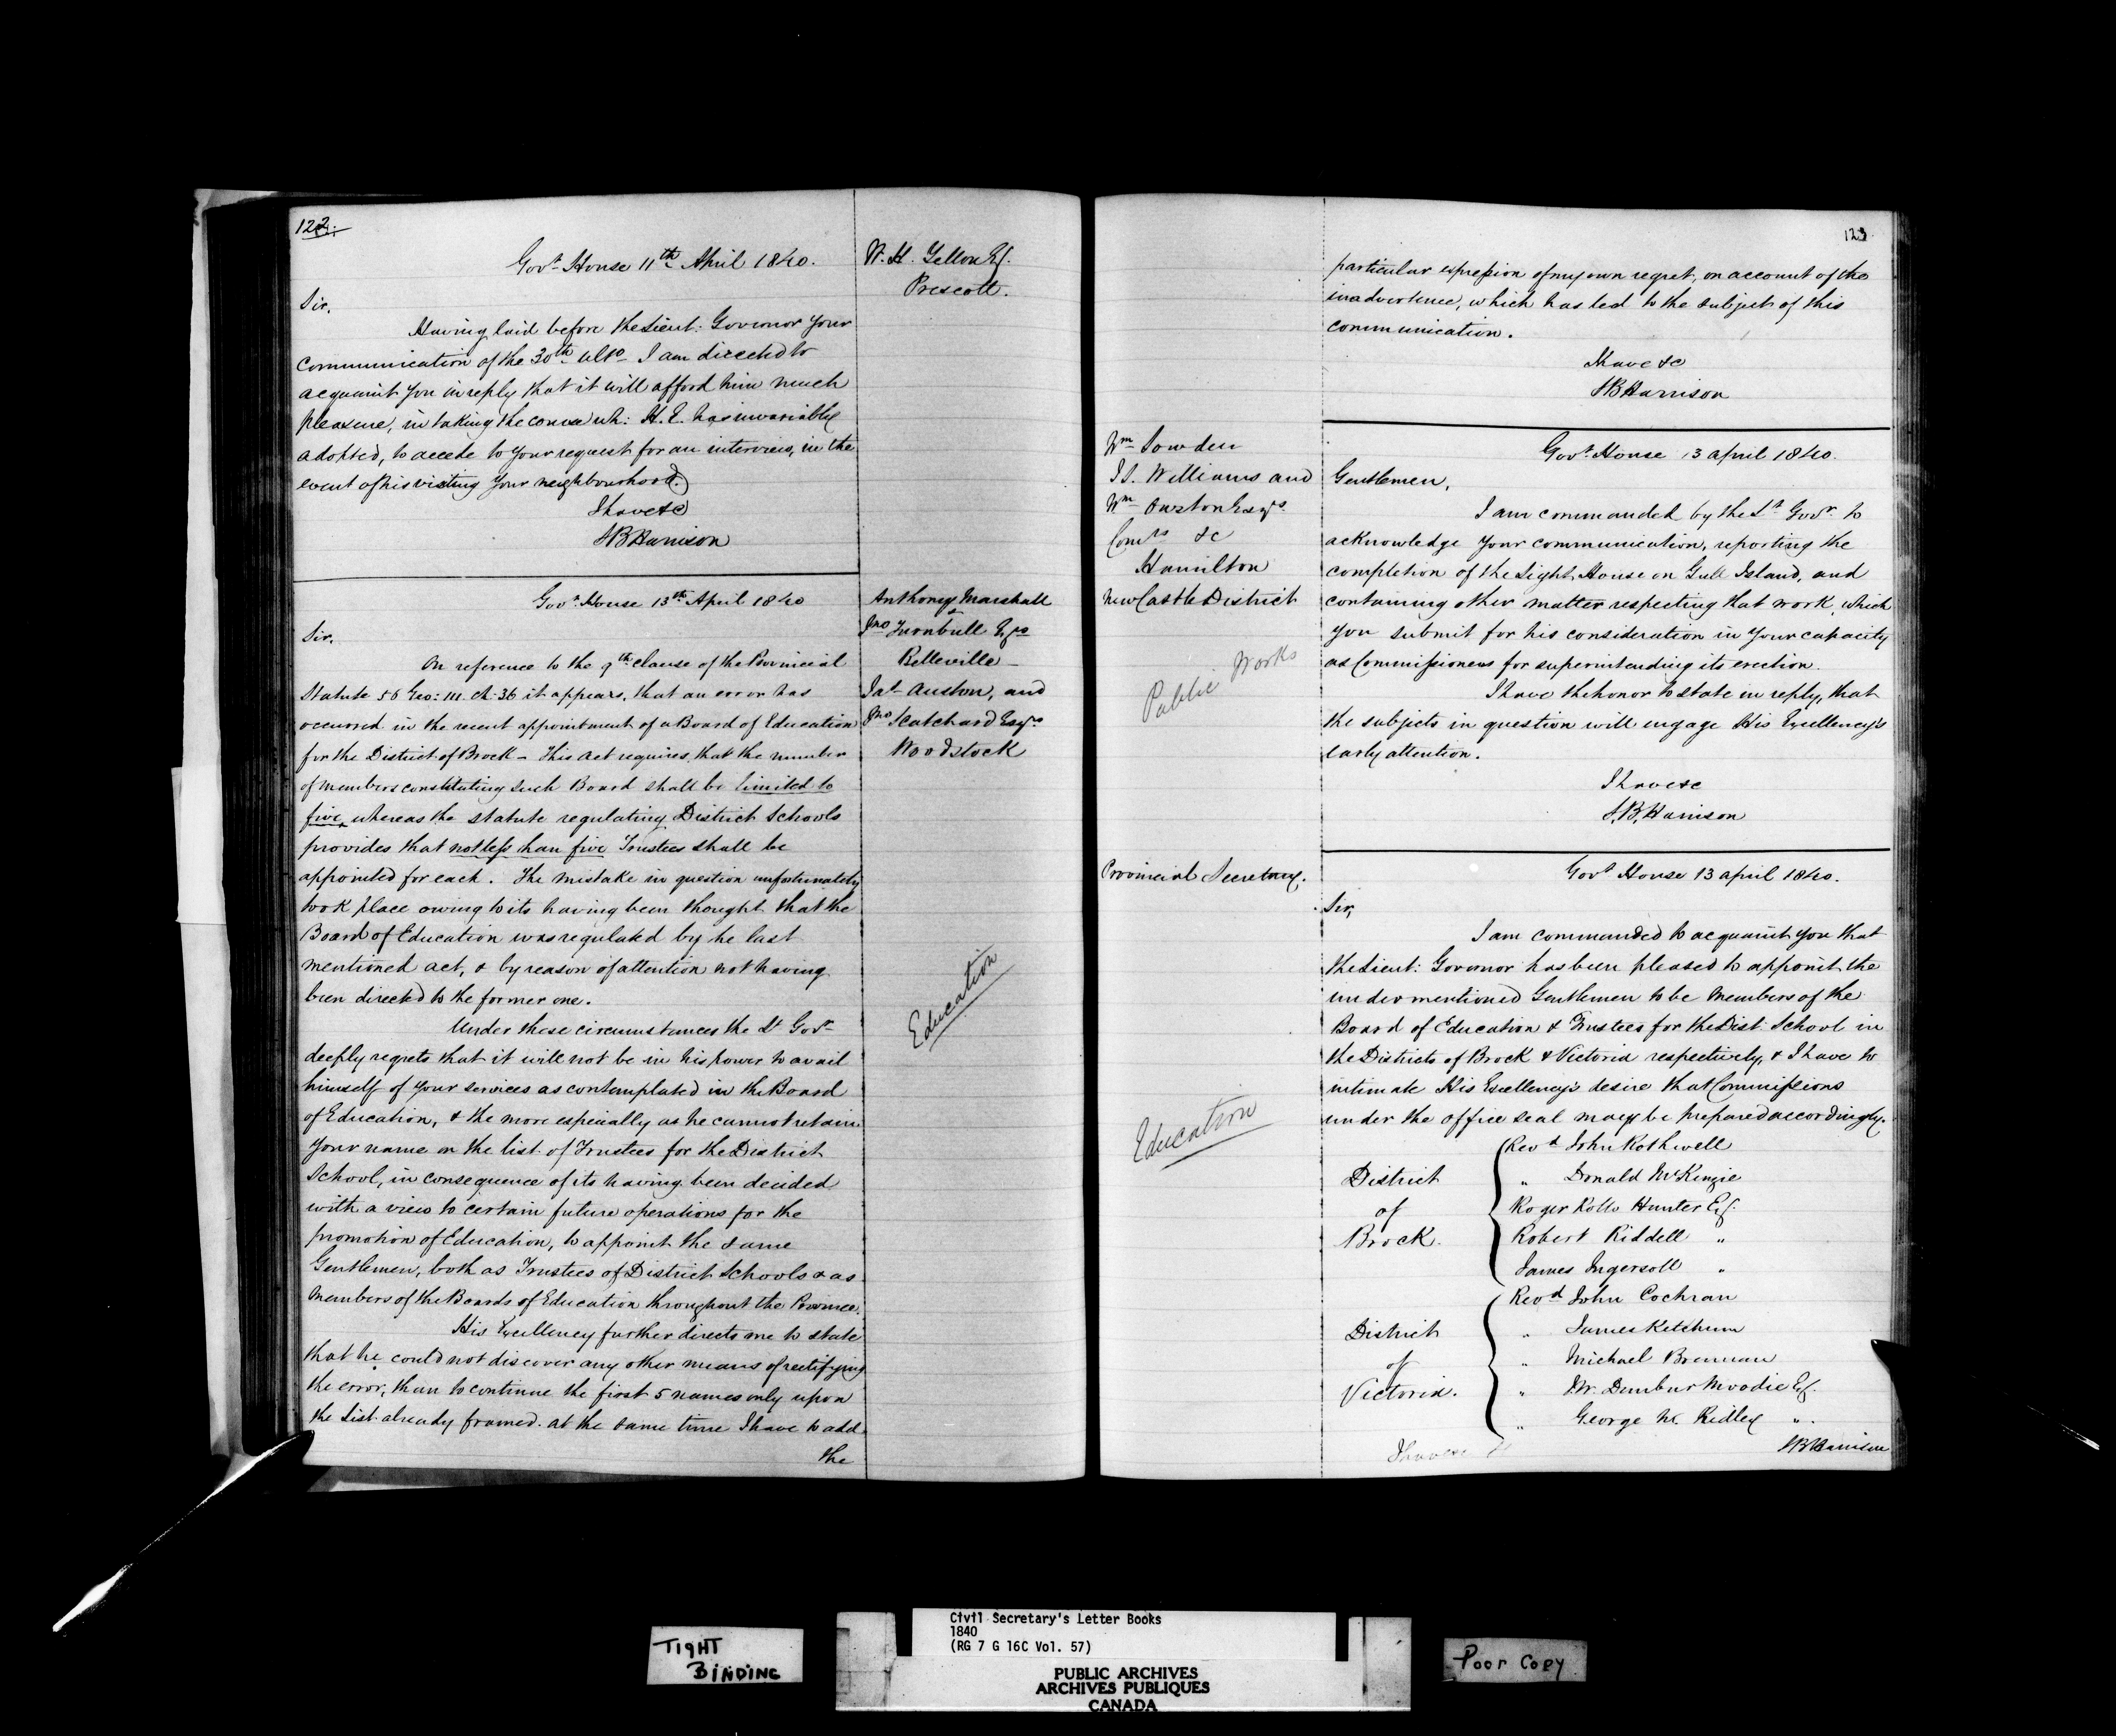 122.
Govt House 11th April 1840.
W. H. Yellon Esq.
Prescott.
Sir,
Having laid before the Lieut: Governor your
communication of the 30th ulto I am directed to
acquaint you in reply that it will afford him much
pleasure, in taking the course wh: H. E. has invariably
adopted, to accede to your request for an interview, in the
event of his visiting your neighbourhood.
I have &c
SB Harrison
Govt House 13th April 1840
Anthony Marshall
&
Jno Turnbull Esqs
Belleville
Jas Auston, and
Jno Scatchard Esqrs
Woodstock
Sir,
On reference to the 9th clause of the Provincial
Statute 56 Geo: III. ch: 36 it appears, that an error has
occurred in the recent appointment of a Board of Education
for the District of Brock – This act requires, that the number
of members constituting such Board shall be limited to
five, whereas the statute regulating District Schools
provides that not less than five Trustees shall be
appointed for each. The mistake in question unfortunately
took place owing to its having been thought that the
Board of Education was regulated by he last
mentioned act, & by reason of attention not having
been directed to the former one.
Education
Under these circumstances the Lt Govr
deeply regrets that it will not be in his power to avail
himself of your services as contemplated in the Board
of Education, & the more especially as he cannot retain
your name on the list of Trustees for the District
School, in consequence of its having been decided
with a view to certain future operations for the
promotion of Education, to appoint the same
Gentlemen, both as Trustees of District Schools & as
Members of the Boards of Education throughout the Province.
His Excellency further directs me to state
that he could not discover any other means of rectifying
the error, than to continue the first 5 names only upon
the List already framed. at the same time I have to add
the
123
particular expression of my own regret, on account of the
inadvertence, which has led to the subject of this
communication.
I have &c
SB Harrison
Wm Sowden
J. T. Williams and
Wm Owston Esqrs
Comrs &c
Hamilton
NewCastle District
Govt House 13 april 1840.
Gentlemen,
I am commanded by the Lt Govr to
acknowledge your communication, reporting the
completion of the Light House on Gull Island, and
containing other matter respecting that work, which
you submit for his consideration in your capacity
as Commissioners for superintending its erection.
Public Works
I have the honor to state in reply, that
the subjects in question will engage His Excellency's
early attention.
I have &c
S.B. Harrison
Provincial Secretary.
Govt House 13 april 1840.
Sir,
I am commanded to acquaint you that
the Lieut: Governor has been pleased to appoint the
undermentioned Gentlemen to be Members of the
Board of Education & Trustees for the Dist: School in
the Districts of Brock & Victoria respectively, & I have to
intimate His Excellency's desire that Commissions
under the office seal may be prepared accordingly.
Education
District
of
Brock.
Revd John Rothwell
„ Donald McKenzie
Roger Rollo Hunter Esq.
Robert Riddell „
James Ingersoll „
District
of
Victoria.
Revd John Cochran
„ James Ketchum
„ Michael Brennan
„ J.W. Dunbar Moodie Esq.
„ George N. Ridley „
I have &c
SB Harrison
TIGHT
BINDING
Civil Secretary's Letter Books
1840
(RG 7 G 16C Vol. 57)
PUBLIC ARCHIVES
ARCHIVES PUBLIQUES
CANADA
Poor Copy